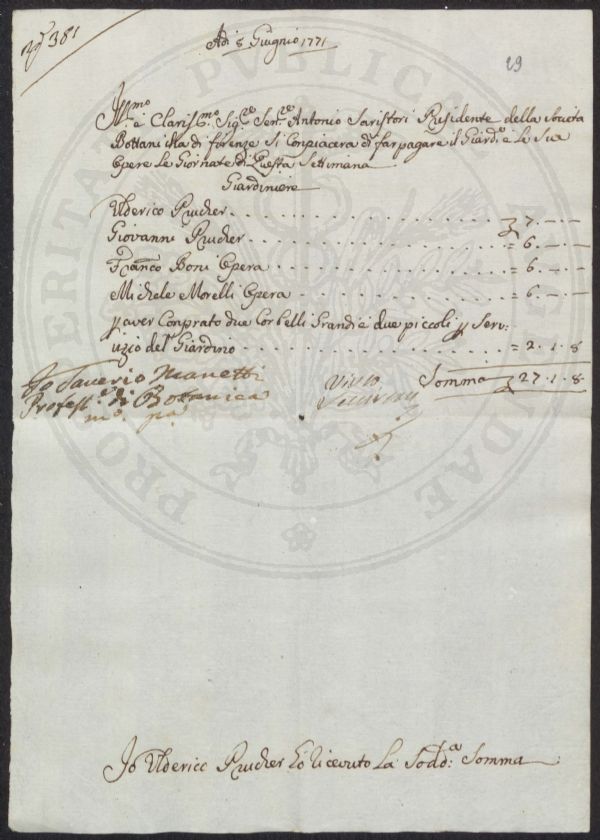 N.º 381
Adi 8 Giugnio 1771
29
Ill.mo e Claris.mo Sig.re Sen.re Antonio Saristori Residente della Società
Bottanicha di firenze Si Conpiacerà di far pagare il Giard.e e le Sua
Opere le Giornate di Questa Settimana
Giardiniere
Ulderico Prucher = 7. — —
Giovanni Prucher = 6. — —
Franco Boni Opera = 6. — —
Michele Morelli Opera = 6. — —
p aver Conprato due Corbelli Grandi e due piccoli p Serv:
uzio del Giardino = 2. 1. 8
Somma 27. 1. 8.
Io Saverio Manetti
Profess.re di Botanica
m.o p.a
Visto
Io Ulderico Prucher ò Riceuto La Sodd.a Somma
PROSPERITATI PUBLICAE AUGENDAE